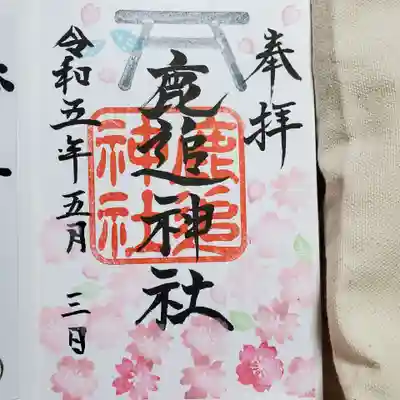 奉拝
鹿追神社
鹿追
神社
令和五年五月三日